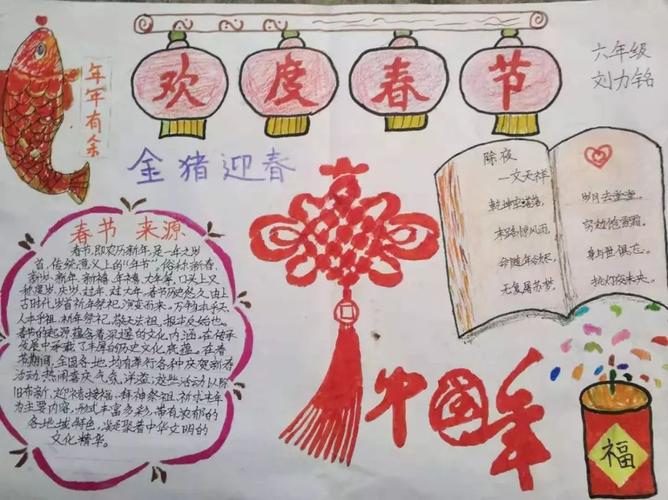 年年有余
欢度春节
六年级
刘力铭
金猪迎春
春节 来源
春节,即农历新年,是一年之岁
首,传统意义上的“年节”。俗称新春、
新岁、新年、新禧、年禧、大年等,口头上又
称度岁、庆岁、过年、过大年。春节历史悠久,由上
古时代岁首祈年祭祀演变而来。万物本乎天
人本乎祖,祈年祭祀、敬天法祖、报本反始也。
春节的起源蕴含着深邃的文化内涵,在传承
发展中承载了丰厚的历史文化底蕴。在春
节期间,全国各地均有举行各种庆贺新春
活动,热闹喜庆气氛洋溢;这些活动以除
旧布新、迎禧接福、拜神祭祖、祈求丰年
为主要内容,形式丰富多彩,带有浓郁的
各地域特色,凝聚着中华文明的
文化精华。
除夜
—文天祥
乾坤空落落,
末路惊风雨,
命随年欲尽,
无复屠苏梦,
岁月去堂堂,
穷边饱雪霜。
身与世俱忘。
挑灯夜未央。
中国年
福